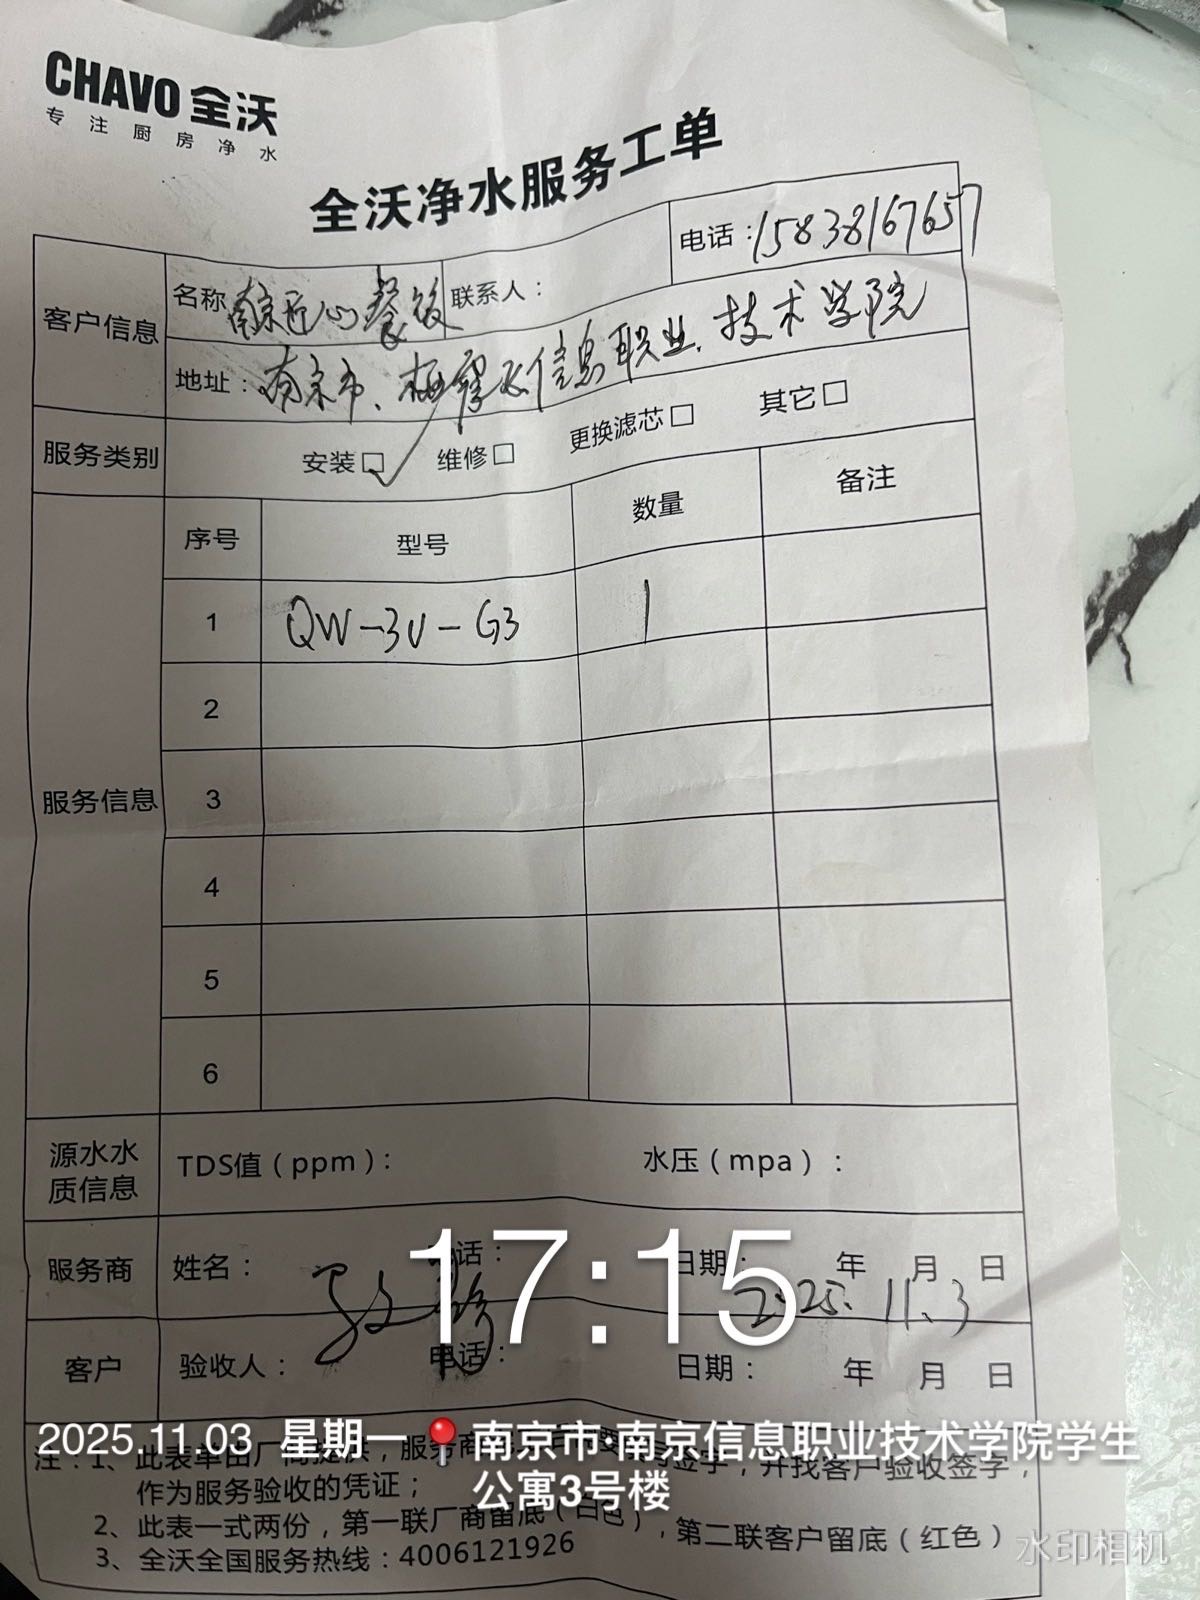 CHAVO 全沃
专注厨房净水
全沃净水服务工单
客户信息
名称 南京匠心餐饮 联系人： 电话：15838167657
地址：南京市、栖霞区信息职业技术学院
服务类别 安装□✓ 维修□ 更换滤芯□ 其它□
服务信息
序号 型号 数量 备注
1 QW-3U-G3 1
2
3
4
5
6
源水水质信息 TDS值（ppm）： 水压（mpa）：
服务商 姓名： 电话： 日期： 年 月 日
2025.11.3
客户 验收人： 电话： 日期： 年 月 日
17:15
2025.11.03 星期一 南京市·南京信息职业技术学院学生
公寓3号楼
注：1、此表单由厂商提供，服务商 签字，并找客户验收签字，
作为服务验收的凭证；
2、此表一式两份，第一联厂商留底（白色），第二联客户留底（红色）
3、全沃全国服务热线：4006121926
水印相机